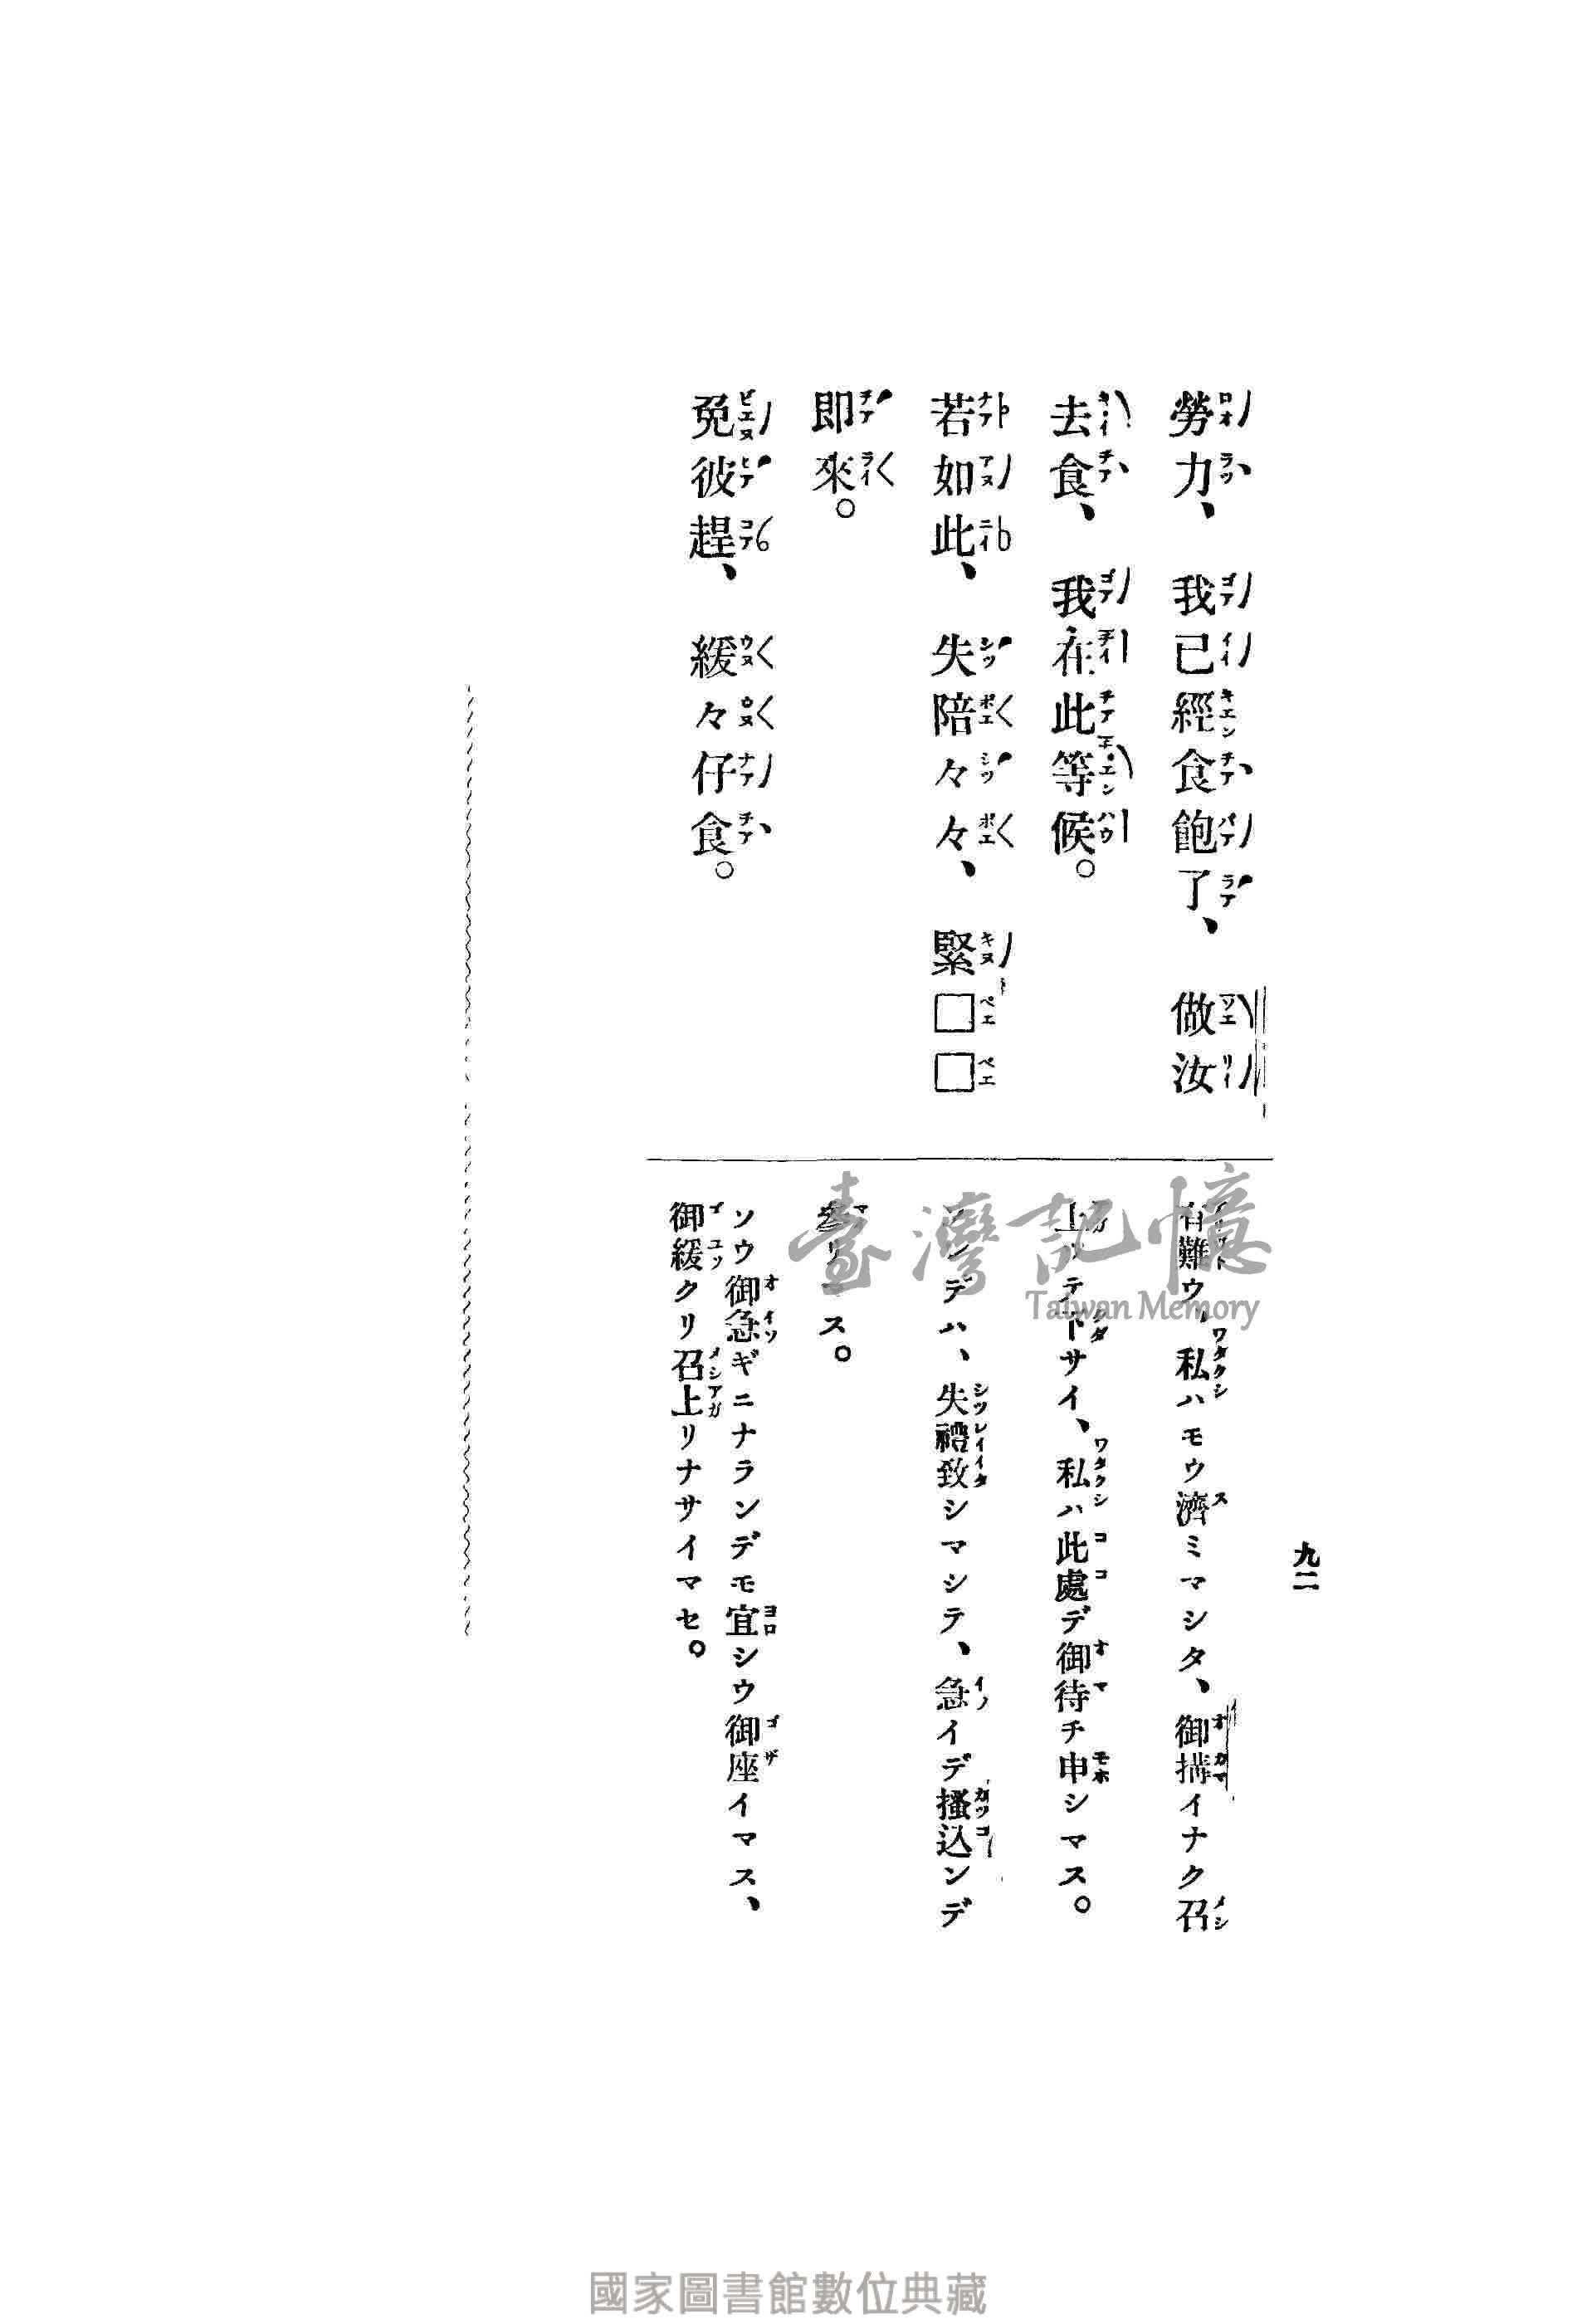 九二
勞力、我已經食飽了、做汝
去食、我在此等候。
若如此、失陪々々、緊□□
即來。
免彼趕、緩々仔食。
有難ウ、私ハモウ濟ミマシタ、御搆イナク召
上ッテ下サイ、私ハ此處デ御待チ申シマス。
ソンデハ、失禮致シマシテ、急イデ搔込ンデ
參リマス。
ソウ御急ギニナランデモ宜シウ御座イマス、
御緩クリ召上リナサイマセ。
臺灣記憶
Taiwan Memory
國家圖書館數位典藏